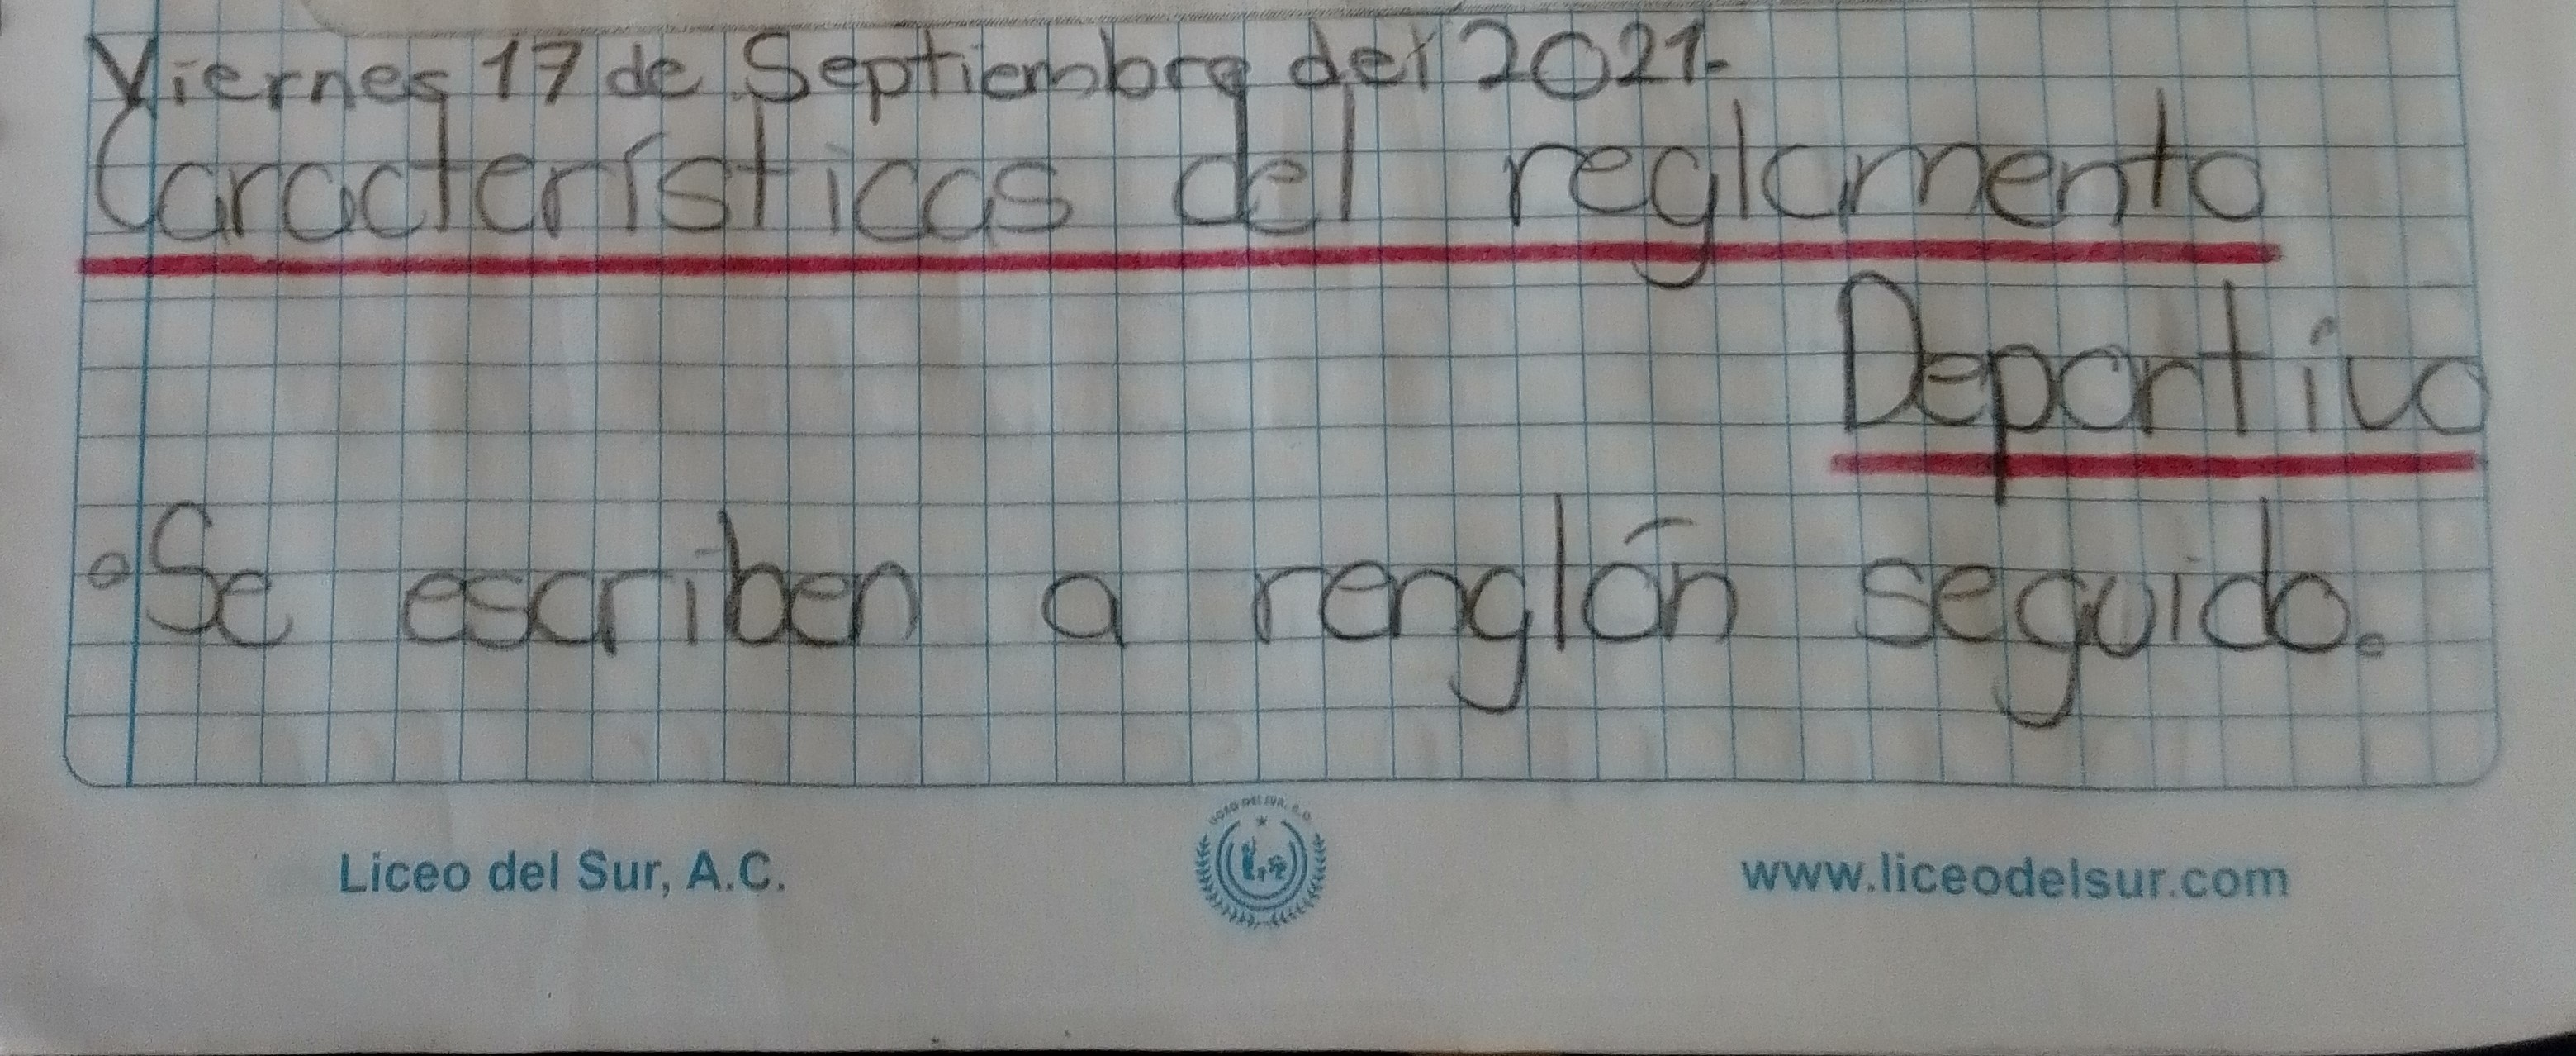 Viernes 17 de Septiembre del 2021.
Características del reglamento
Deportivo
• Se escriben a renglón seguido.
LICEO DEL SUR, A.C.
Liceo del Sur, A.C.
www.liceodelsur.com